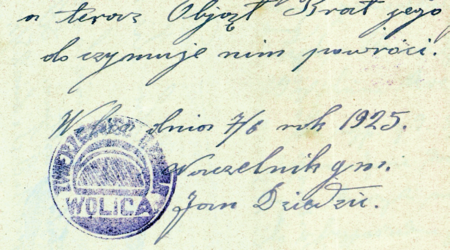 a teraz Objął Brat jego
do czymuje nim powróci.
dnia 7/6 rok 1925.
Naczelnik gm.
Jan Dziedzic.
WOLICA